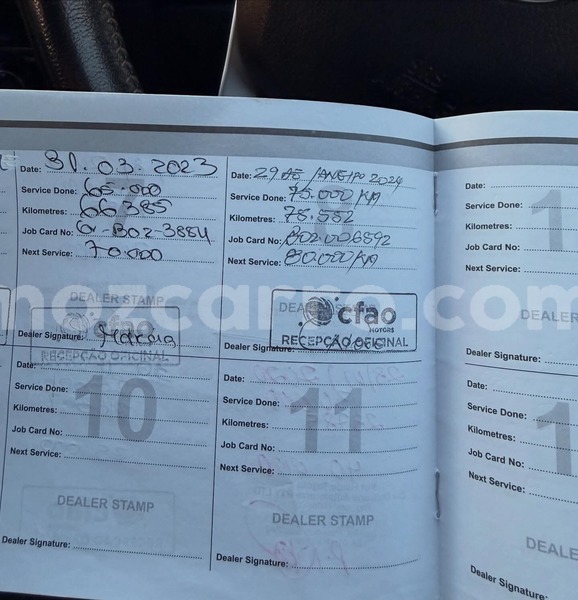 Date: 31.03.2023
Service Done: 65.000
Kilometres: 66385
Job Card No: G-B02-3884
Next Service: 70.000
DEALER STAMP
cfao
RECEPÇÃO OFICINAL
Dealer Signature:
Date: 29 DE JANEIRO 2024
Service Done: 75.000 KM
Kilometres: 78.552
Job Card No: B02.006892
Next Service: 80.000 KM
8
DEALER STAMP
cfao
MOTORS
RECEPÇÃO OFICINAL
Dealer Signature:
Date:
Service Done:
Kilometres:
Job Card No:
Next Service:
DEALER
Dealer Signature:
mozcarro.com
Date:
Service Done:
Kilometres:
Job Card No:
Next Service:
10
DEALER STAMP
Dealer Signature:
Date:
Service Done:
Kilometres:
Job Card No:
Next Service:
11
DEALER STAMP
Dealer Signature:
Date:
Service Done:
Kilometres:
Job Card No:
Next Service:
DEALE
Dealer Signature: